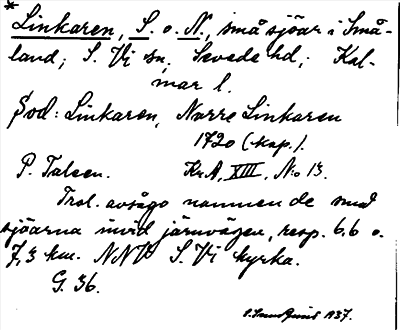 * Linkaren, S. o. N., små sjöar i Små-
land; S. Vi sn, Sevede hd; Kal-
mar l.
Sod: Linkaren, Norre Linkaren
1720 (kap.).
P. Taleen. Kr.A, XIII, No 13.
Trol. avsågo namnen de små
sjöarna invid järnvägen, resp. 6,6 o.
7,3 km. NNV S. Vi kyrka.
G. 36.
1937.